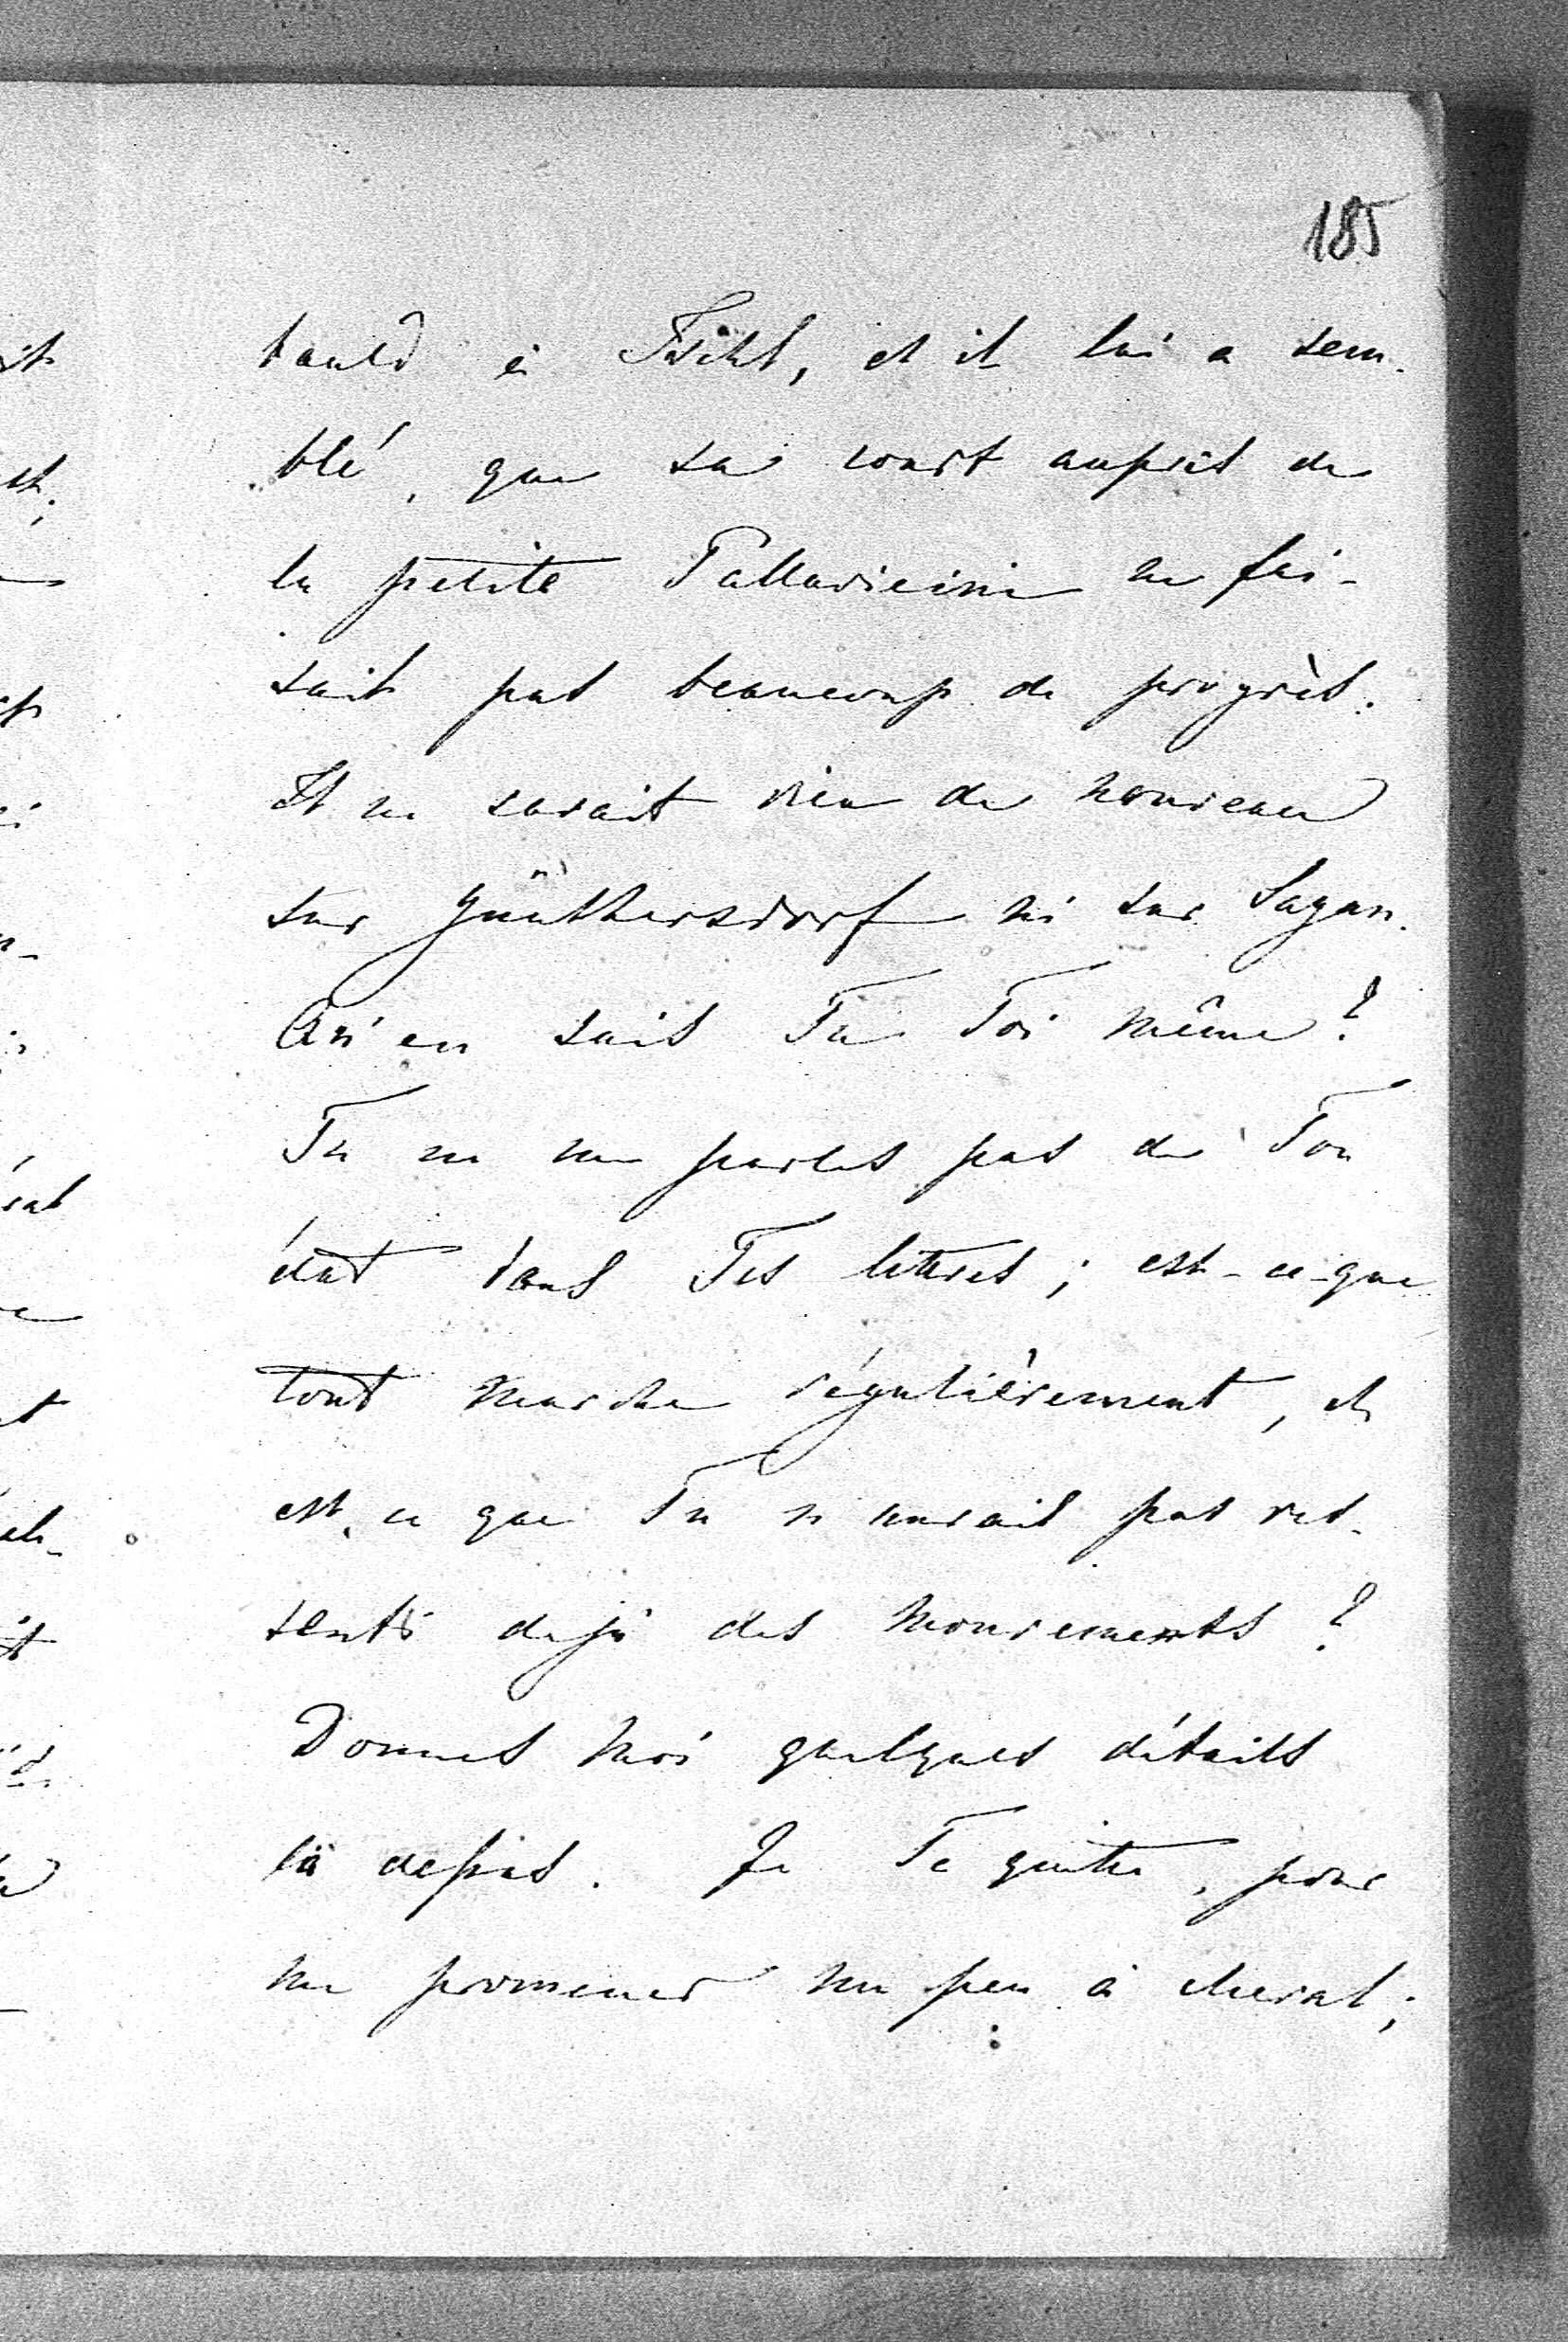 185
bauld à Ischl, et il lui a sem-
blé, que sa court auprès de
la petite Pallavicini ne fai-
sait pas beaucoup de progrès.
Il ne savait rien de nouveau
sur Günthersdorf ni sur Sagan.
Qu'en sais Tu Toi même?
Tu ne me parles pas de Ton
état dans Tes lettres; est-ce-que
tout marche régulièrement, et
est-ce que Tu n'aurais pas res-
senti dejà des mouvements?
Donnes moi quelques détails
là dessus. Je Te quitte, pour
me promener un peu à cheval;